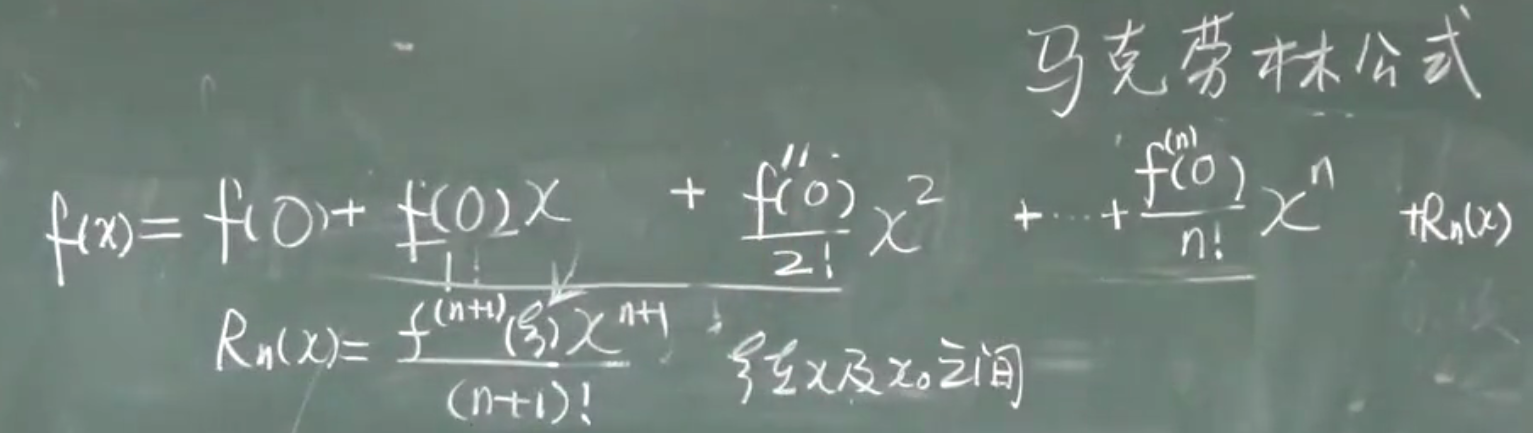 马克劳林公式
f(x)= f(0)+ f(0)/1! x + f''(0)/2! x² +⋯+ f⁽ⁿ⁾(0)/n! xⁿ +Rₙ(x)
Rₙ(x)= f⁽ⁿ⁺¹⁾(ξ)xⁿ⁺¹/(n+1)! ξ在x及x₀之间